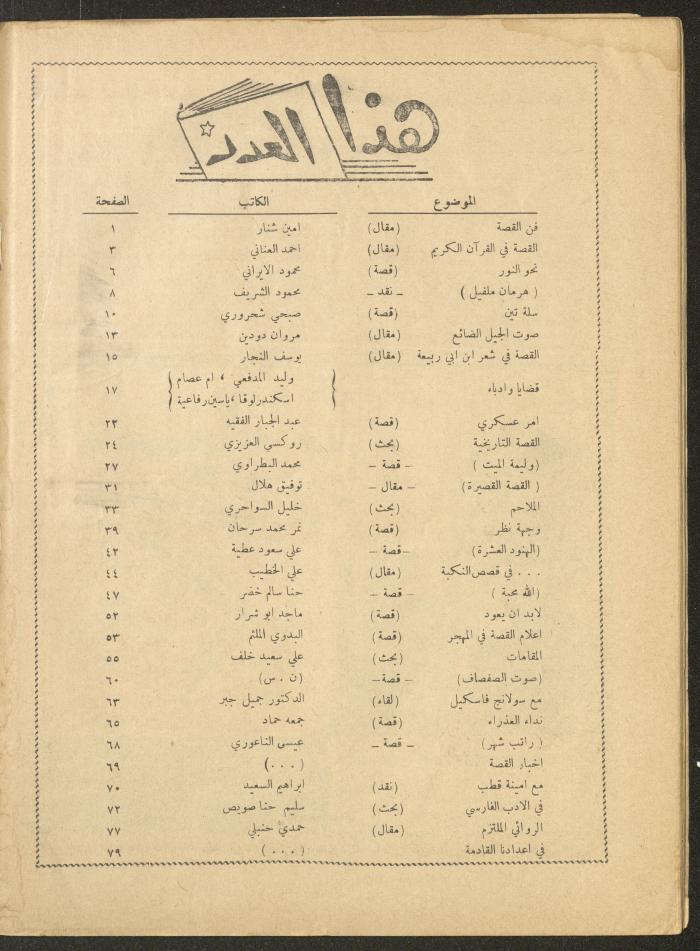 هذا العدد
الموضوع الكاتب الصفحة
فن القصة (مقال) امين شنار ١
القصة في القرآن الكريم (مقال) احمد العناني ٣
نحو النور (قصة) محمود الايراني ٦
( هرمان ملفيل ) ـ نقد ـ محمود الشريف ٨
سلة تين (قصة) صبحي شحروري ١٠
صوت الجيل الضائع (مقال) مروان دودين ١٣
القصة في شعر ابن ابي ربيعة (مقال) يوسف النجار ١٥
قضايا وادباء { وليد المدفعي ، ام عصام
اسكندرلوقا ،ياسين رفاعية } ١٧
امر عسكري (قصة) عبد الجبار الفقيه ٢٣
القصة التاريخية (بحث) روكسي العزيزي ٢٤
(وليمة الميت ) ـ قصة ـ محمد البطراوي ٢٧
( القصة القصيرة) ـ مقال ـ توفيق هلال ٣١
الملاحم (بحث) خليل السواحري ٣٣
وجهة نظر (قصة) نمر محمد سرحان ٣٩
(الهنود العشرة) ـ قصة ـ علي سعود عطية ٤٢
. . . في قصص النكبة (مقال) علي الخطيب ٤٤
(الله محبة ) ـ قصة ـ حنا سالم خضر ٤٧
لابد ان يعود (قصة) ماجد ابو شرار ٥٢
اعلام القصة في المهجر (قصة) البدوي الملثم ٥٣
المقامات (بحث) علي سعيد خلف ٥٥
(صوت الصفصاف) ـ قصة ـ (ن . س) ٦٠
مع سولانج فاسكيل (لقاء) الدكتور جميل جبر ٦٣
نداء العذراء (قصة) جمعه حماد ٦٥
( راتب شهر) ـ قصة ـ عيسى الناعوري ٦٨
اخبار القصة ( . . . ) ٦٩
مع امينة قطب (نقد) ابراهيم السعيد ٧٠
في الادب الفارسي (بحث) سليم حنا صويص ٧٢
الروائي الملتزم (مقال) حمدي حنبلي ٧٧
في اعدادنا القادمة ( . . . ) ٧٩